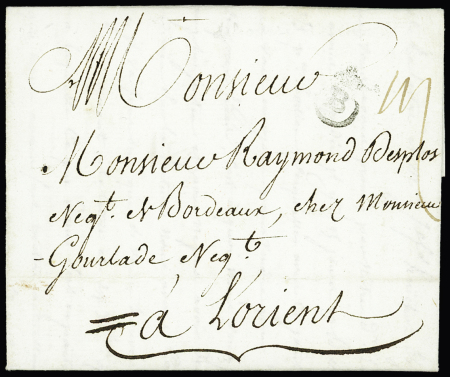 Monsieur
Monsieur Raymond Desplos
Negt. de Bordeaux, chez Monsieur
Gourlade, Negt.
à L'orient